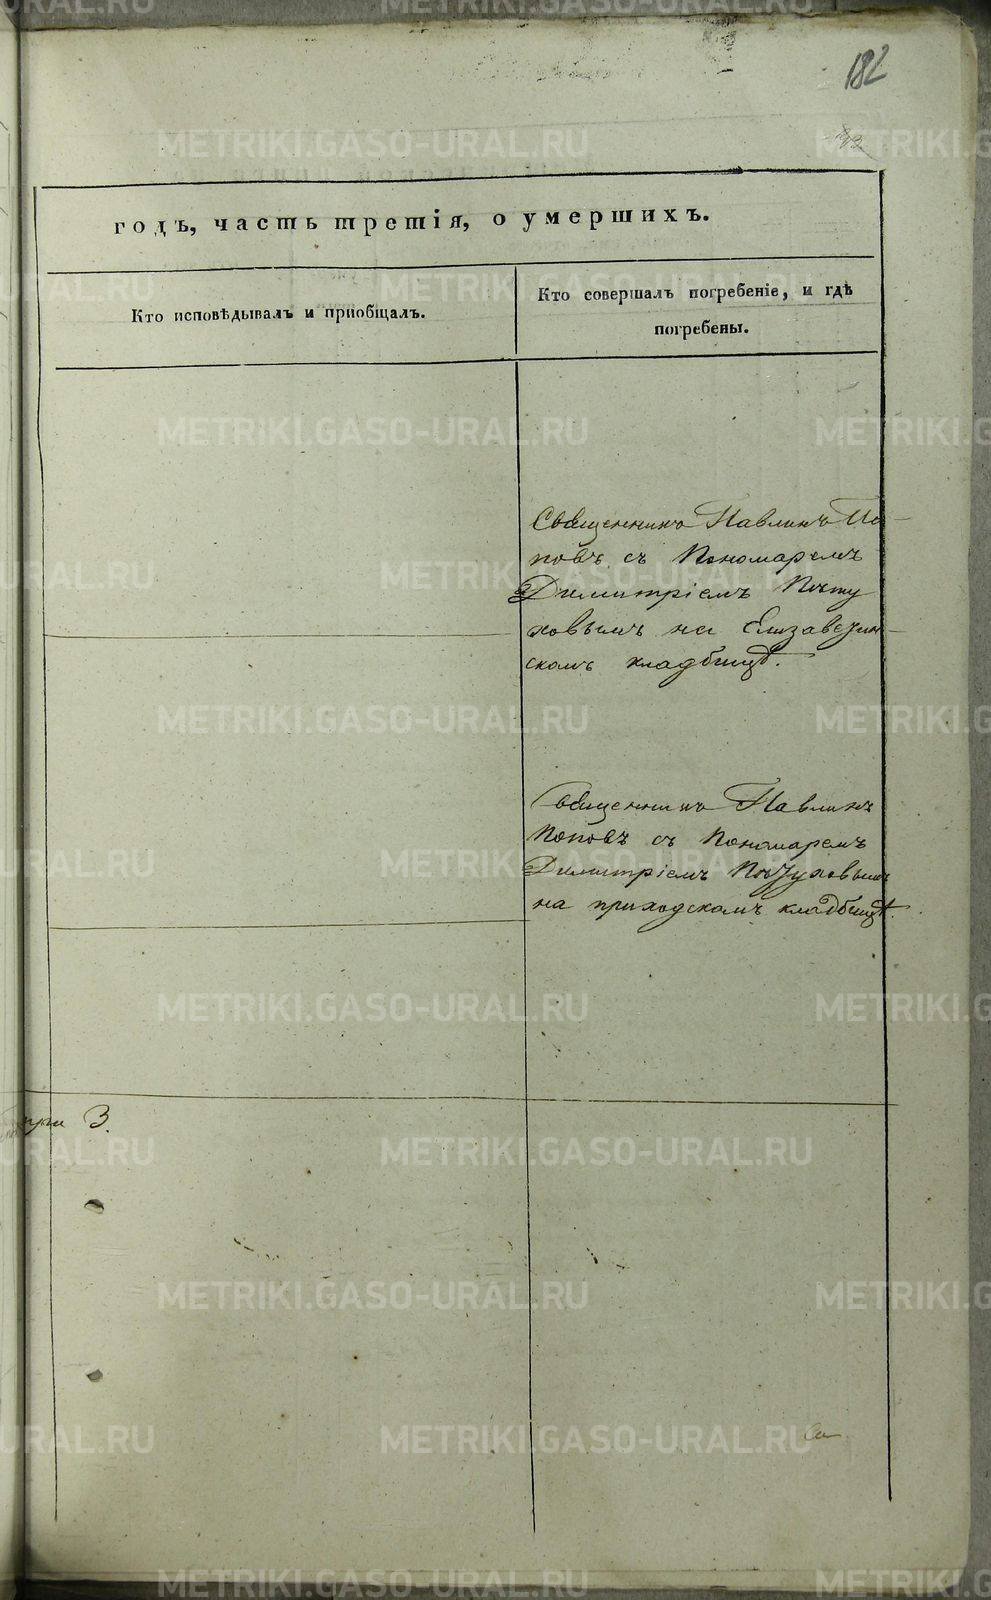 182
годъ, часть третія, о умершихъ.
Кто исповѣдывалъ и пріобщалъ.
Кто совершалъ погребеніе, и гдѣ
погребены.
Священникъ Павлинъ По-
повъ съ Пономаремъ
Димитріемъ Пѣту
ховымъ на Елизаветин-
скомъ кладбищѣ.
Священникъ Павлинъ
Поповъ съ Пономаремъ
Димитріемъ Пѣтуховымъ
на приходскомъ кладбищѣ.
три 3.
METRIKI.GASO-URAL.RU